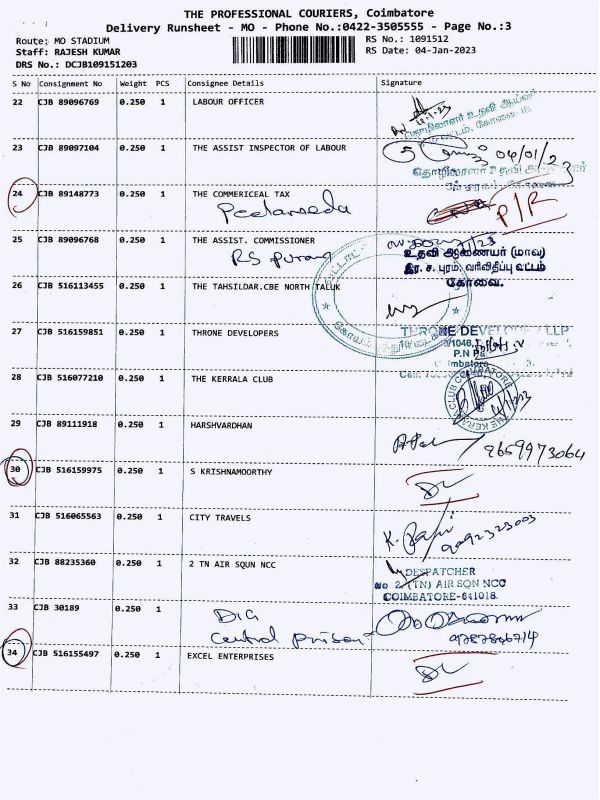 THE PROFESSIONAL COURIERS, Coimbatore
Delivery Runsheet - MO - Phone No.:0422-3505555 - Page No.:3
Route: MO STADIUM
RS No.: 1091512
Staff: RAJESH KUMAR
RS Date: 04-Jan-2023
DRS No.: DCJB109151203
S No Consignment No Weight PCS Consignee Details Signature
22 CJB 89096769 0.250 1 LABOUR OFFICER
23 CJB 89097104 0.250 1 THE ASSIST INSPECTOR OF LABOUR 04/01/23
24 CJB 89148773 0.250 1 THE COMMERICEAL TAX
Peelamedu P/R
25 CJB 89096768 0.250 1 THE ASSIST. COMMISSIONER
RS Puram
உதவி ஆணையர் (மாவ)
இர. ச. புரம், வரிவிதிப்பு வட்டம்
கோவை.
26 CJB 516113455 0.250 1 THE TAHSILDAR.CBE NORTH TALUK
27 CJB 516159851 0.250 1 THRONE DEVELOPERS
28 CJB 516077210 0.250 1 THE KERRALA CLUB
29 CJB 89111918 0.250 1 HARSHVARDHAN
9659973064
30 CJB 516159975 0.250 1 S KRISHNAMOORTHY
DL
31 CJB 516065563 0.250 1 CITY TRAVELS
9092323003
32 CJB 88235360 0.250 1 2 TN AIR SQUN NCC
DESPATCHER
No 2 (TN) AIR SQN NCC
COIMBATORE-641018.
33 CJB 30189 0.250 1 DIG
Central Prison
34 CJB 516155497 0.250 1 EXCEL ENTERPRISES
DL